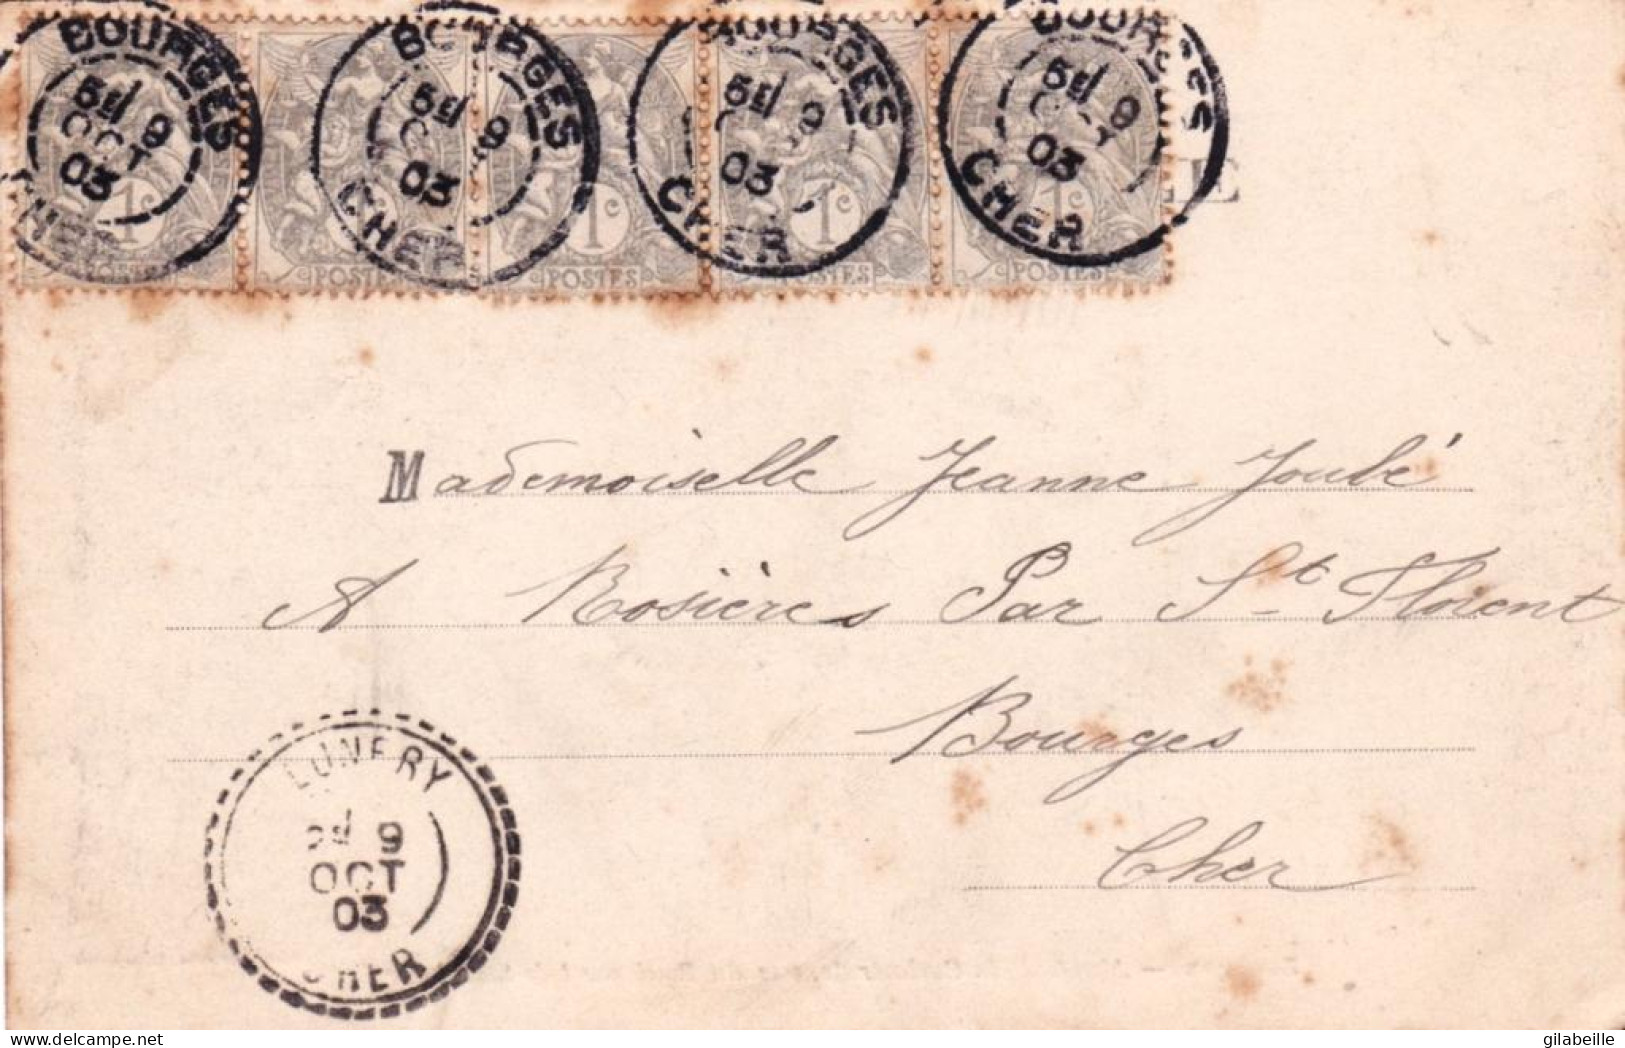 BOURGES BOURGES BOURGES BOURGES
5E/ 9 5E/ 9 5E/ 9 5E/ 9
OCT
03 03 03 03
CHER CHER CHER CHER
1c 1c 1c 1c
POSTES POSTES POSTES POSTES POSTES
E
Mademoiselle Jeanne Joubé
A Rosières Par St Florent
Bourges
Cher
LUNERY
9
OCT
03
CHER
delcampe.net
gilabeille